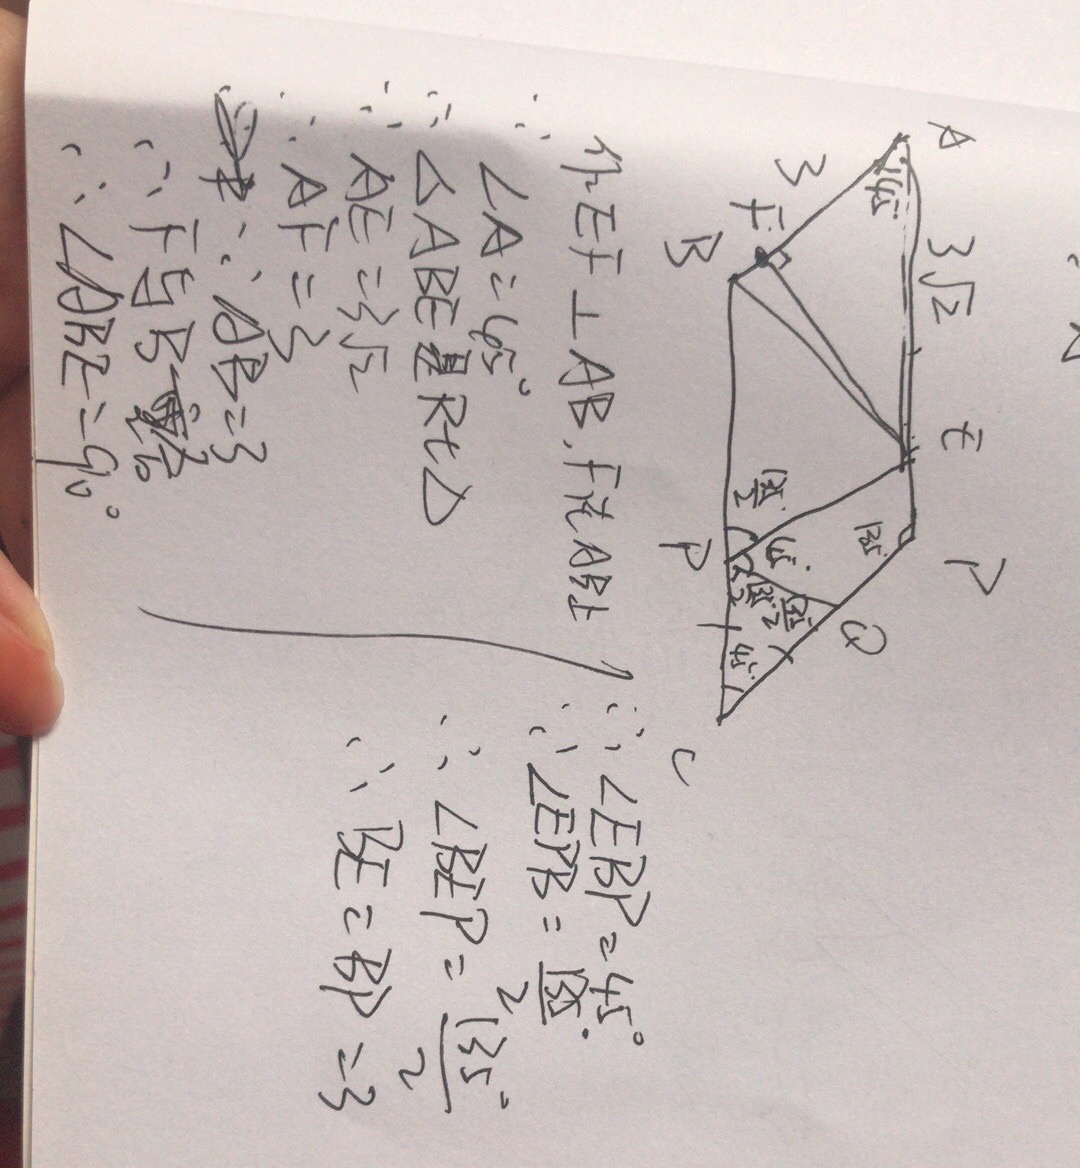 A
3√2
E
D
45°
135°
3
F
B
135°
2
45°
135°
2
135°
2
45°
P
Q
C
作EF⊥AB,F在AB上
∵ ∠A=45°
∴ △ABE是Rt△
∵ AE=3√2
∴ AF=3
∵ AB=3
∴ F与B
∴ ∠ABE=90°
∵ ∠EBP=45°
∠EPB=135°
2
∴ ∠BEP=135°
2
∴ BE=BP=3